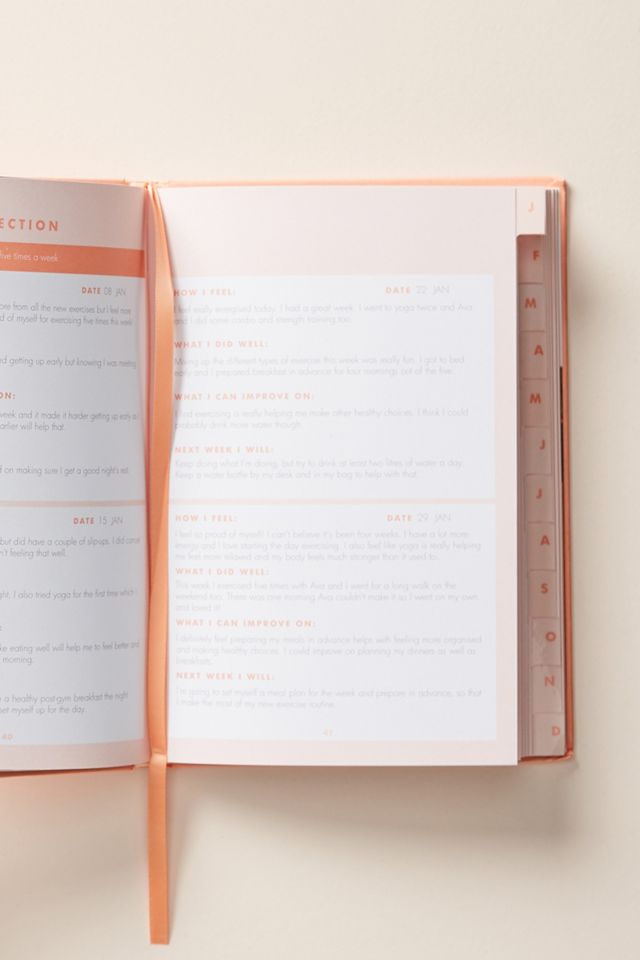 ECTION
five times a week
DATE 08 JAN
ore from all the new exercises but I feel more
d of myself for exercising five times this week!
d getting up early but knowing I was meeting
ON:
week and it made it harder getting up early as I
arlier will help that.
d on making sure I get a good night's rest.
DATE 15 JAN
but did have a couple of slip-ups. I did cancel
n't feeling that well.
ght, I also tried yoga for the first time which I
:
ke eating well will help me to feel better and
morning.
e a healthy post-gym breakfast the night
set myself up for the day.
40
HOW I FEEL:
DATE 22 JAN
I feel really energised today. I had a great week. I went to yoga twice and Ava
and I did some cardio and strength training too.
WHAT I DID WELL:
Mixing up the different types of exercise this week was really fun. I got to bed
early and I prepared breakfast in advance for four mornings out of the five.
WHAT I CAN IMPROVE ON:
I find exercising is really helping me make other healthy choices. I think I could
probably drink more water though.
NEXT WEEK I WILL:
Keep doing what I'm doing, but try to drink at least two litres of water a day.
Keep a water bottle by my desk and in my bag to help with that.
HOW I FEEL:
DATE 29 JAN
I feel so proud of myself! I can't believe it's been four weeks. I have a lot more
energy and I love starting the day exercising. I also feel like yoga is really helping
me feel more relaxed and my body feels much stronger than it used to.
WHAT I DID WELL:
This week I exercised five times with Ava and I went for a long walk on the
weekend too. There was one morning Ava couldn't make it so I went on my own
and loved it!
WHAT I CAN IMPROVE ON:
I definitely feel preparing my meals in advance helps with feeling more organised
and making healthy choices. I could improve on planning my dinners as well as
breakfasts.
NEXT WEEK I WILL:
I'm going to set myself a meal plan for the week and prepare in advance, so that
I make the most of my new exercise routine.
41
J
F
M
A
M
J
J
A
S
O
N
D